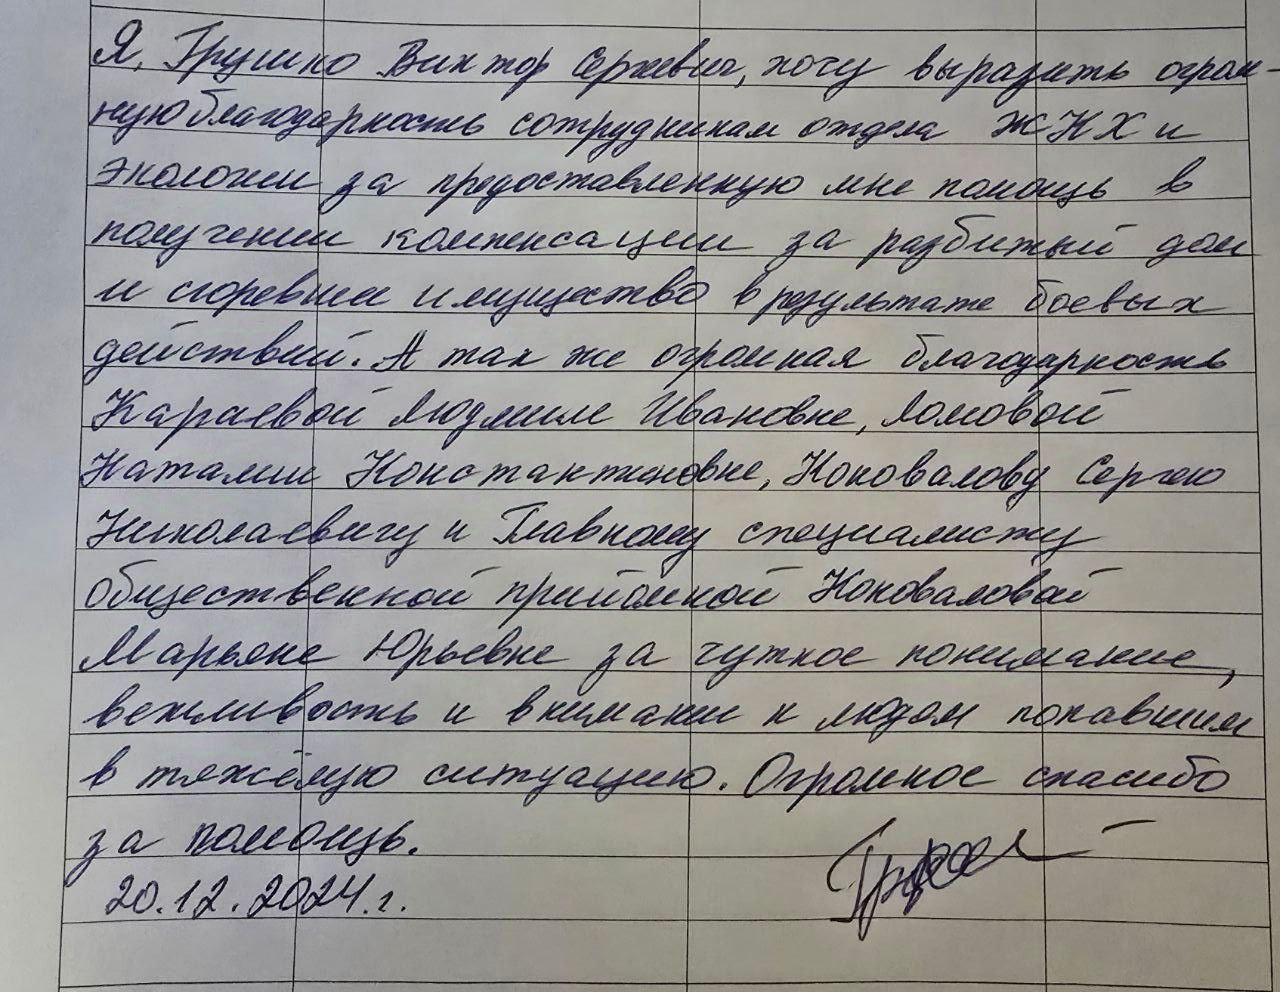 Я, Грушко Виктор Сергеевич, хочу выразить огром-
ную благодарность сотрудникам отдела ЖКХ и
экологии за предоставленную мне помощь в
получении компенсации за разбитый дом
и сгоревшее имущество в результате боевых
действий. А так же огромная благодарность
Караевой Людмиле Ивановне, Ломовой
Наталии Константиновне, Коновалову Сергею
Николаевичу и Главному специалисту
общественной приёмной Коноваловой
Марьяне Юрьевне за чуткое понимание,
вежливость и внимание к людям попавшим
в тяжёлую ситуацию. Огромное спасибо
за помощь.
20.12.2024 г.